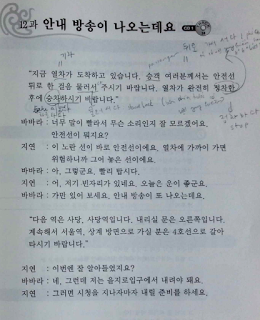 12과 안내 방송이 나오는데요
"지금 열차가 도착하고 있습니다. 승객 여러분께서는 안전선
뒤로 한 걸음 물러서 주시기 바랍니다. 열차가 완전히 정차한
후에 승차하시기 바랍니다."
바바라 : 너무 말이 빨라서 무슨 소리인지 잘 모르겠어요.
안전선이 뭐지요?
지연 : 이 노란 선이 바로 안전선이에요. 열차에 가까이 가면
위험하니까 그어 놓은 선이에요.
바바라 : 아, 그렇군요. 빨리 탑시다.
지연 : 어, 저기 빈자리가 있네요. 오늘은 운이 좋군요.
바바라 : 가만 있어 보세요. 안내 방송이 또 나오는데요.
"다음 역은 사당, 사당역입니다. 내리실 문은 오른쪽입니다.
계속해서 서울역, 상계 방면으로 가실 분은 4호선으로 갈아
타시기 바랍니다."
지연 : 이번엔 잘 알아들었지요?
바바라 : 네, 그런데 저는 을지로입구에서 내려야 돼요.
지연 : 그러면 시청을 지나자마자 내릴 준비를 하세요.